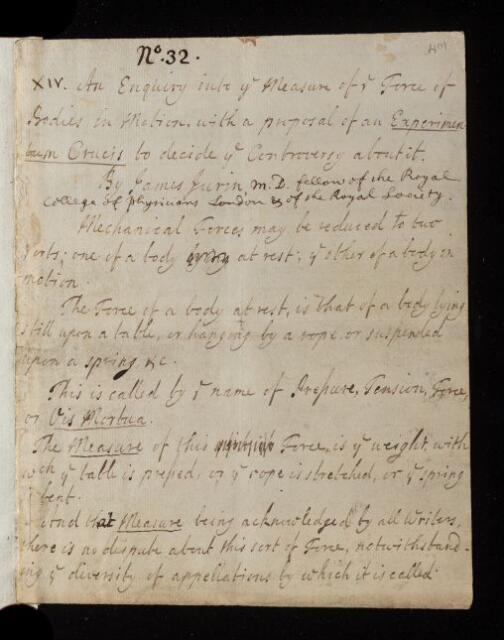 No. 32.
XIV. An Enquiry into ye Measure of ye Force of
Bodies in Motion, with a proposal of an Experimen
tum Crucis to decide ye Controversy about it.
By James Jurin, M.D. fellow of the Royal
College of physicians London & of the Royal Society.
Mechanical Forces may be reduced to two
sorts; one of a body at rest; ye other of a body in
motion.
The Force of a body at rest, is that of a body lying
still upon a table, or hanging by a rope, or suspended
upon a spring &c.
This is called by ye name of Pressure, Tension, Force,
or Vis Mortua.
The Measure of this Force, is ye weight, with
wch ye table is pressed, or ye rope is stretched, or ye spring
bent.
And that Measure being acknowledged by all Writers,
there is no dispute about this sort of Force, notwithstand-
ing ye diversity of appellations by which it is called.